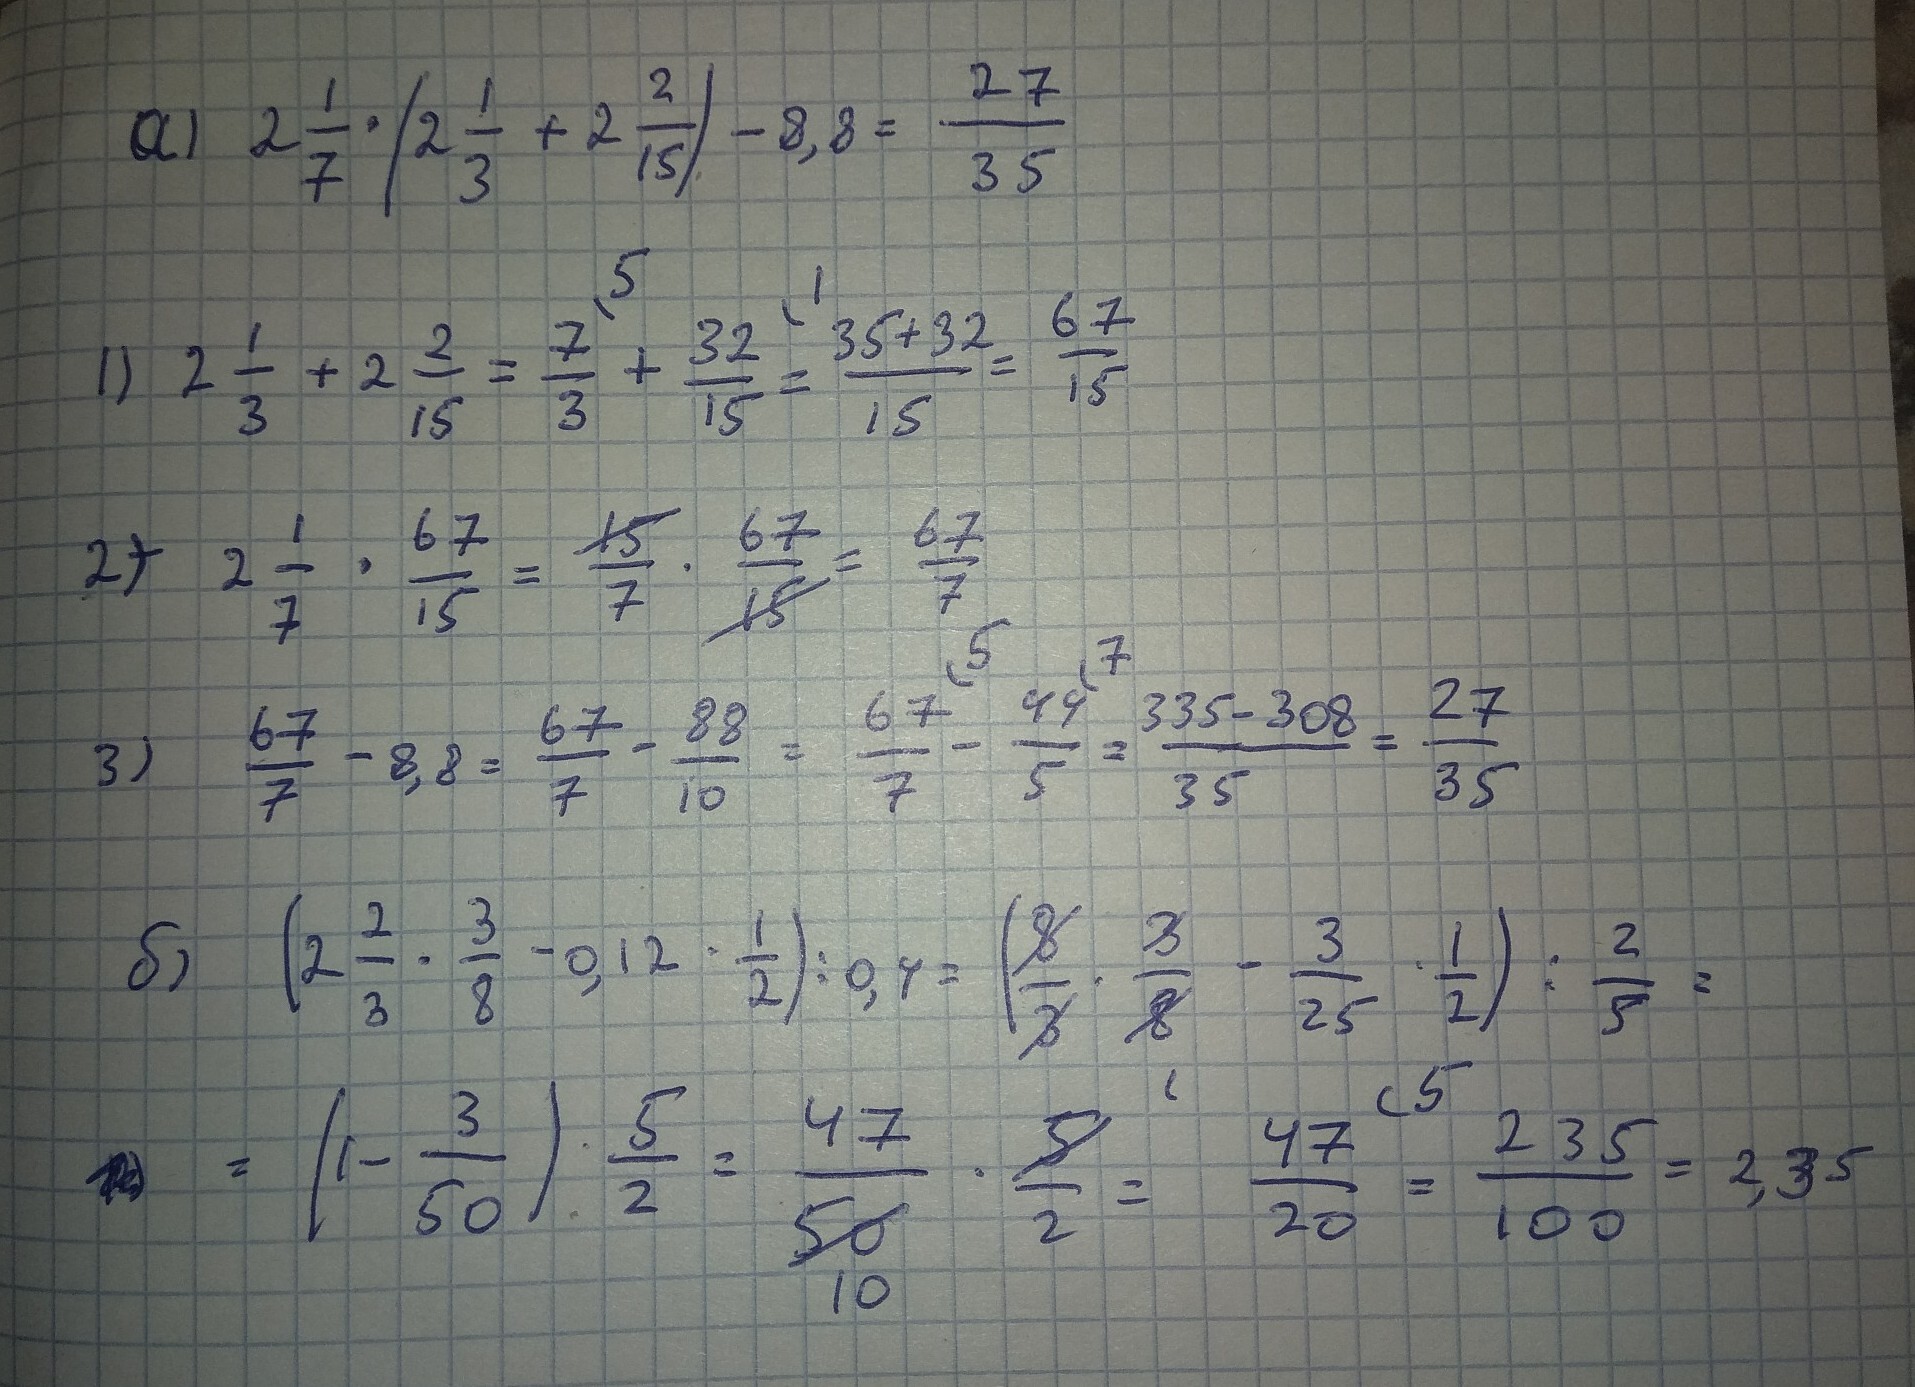 а) 2 1/7 · (2 1/3 + 2 2/15) - 8,8 = 27/35
1) 2 1/3 + 2 2/15 = 7/3 (5 + 32/15 (1 = 35+32/15 = 67/15
2) 2 1/7 · 67/15 = 15/7 · 67/15 = 67/7
3) 67/7 - 8,8 = 67/7 - 88/10 = 67/7 (5 - 44/5 (7 = 335-308/35 = 27/35
б) (2 2/3 · 3/8 - 0,12 · 1/2) : 0,4 = (8/3 · 3/8 - 3/25 · 1/2) : 2/5 =
= (1 - 3/50) · 5/2 = 47/50 10 · 5/2 1 = 47/20 (5 = 235/100 = 2,35